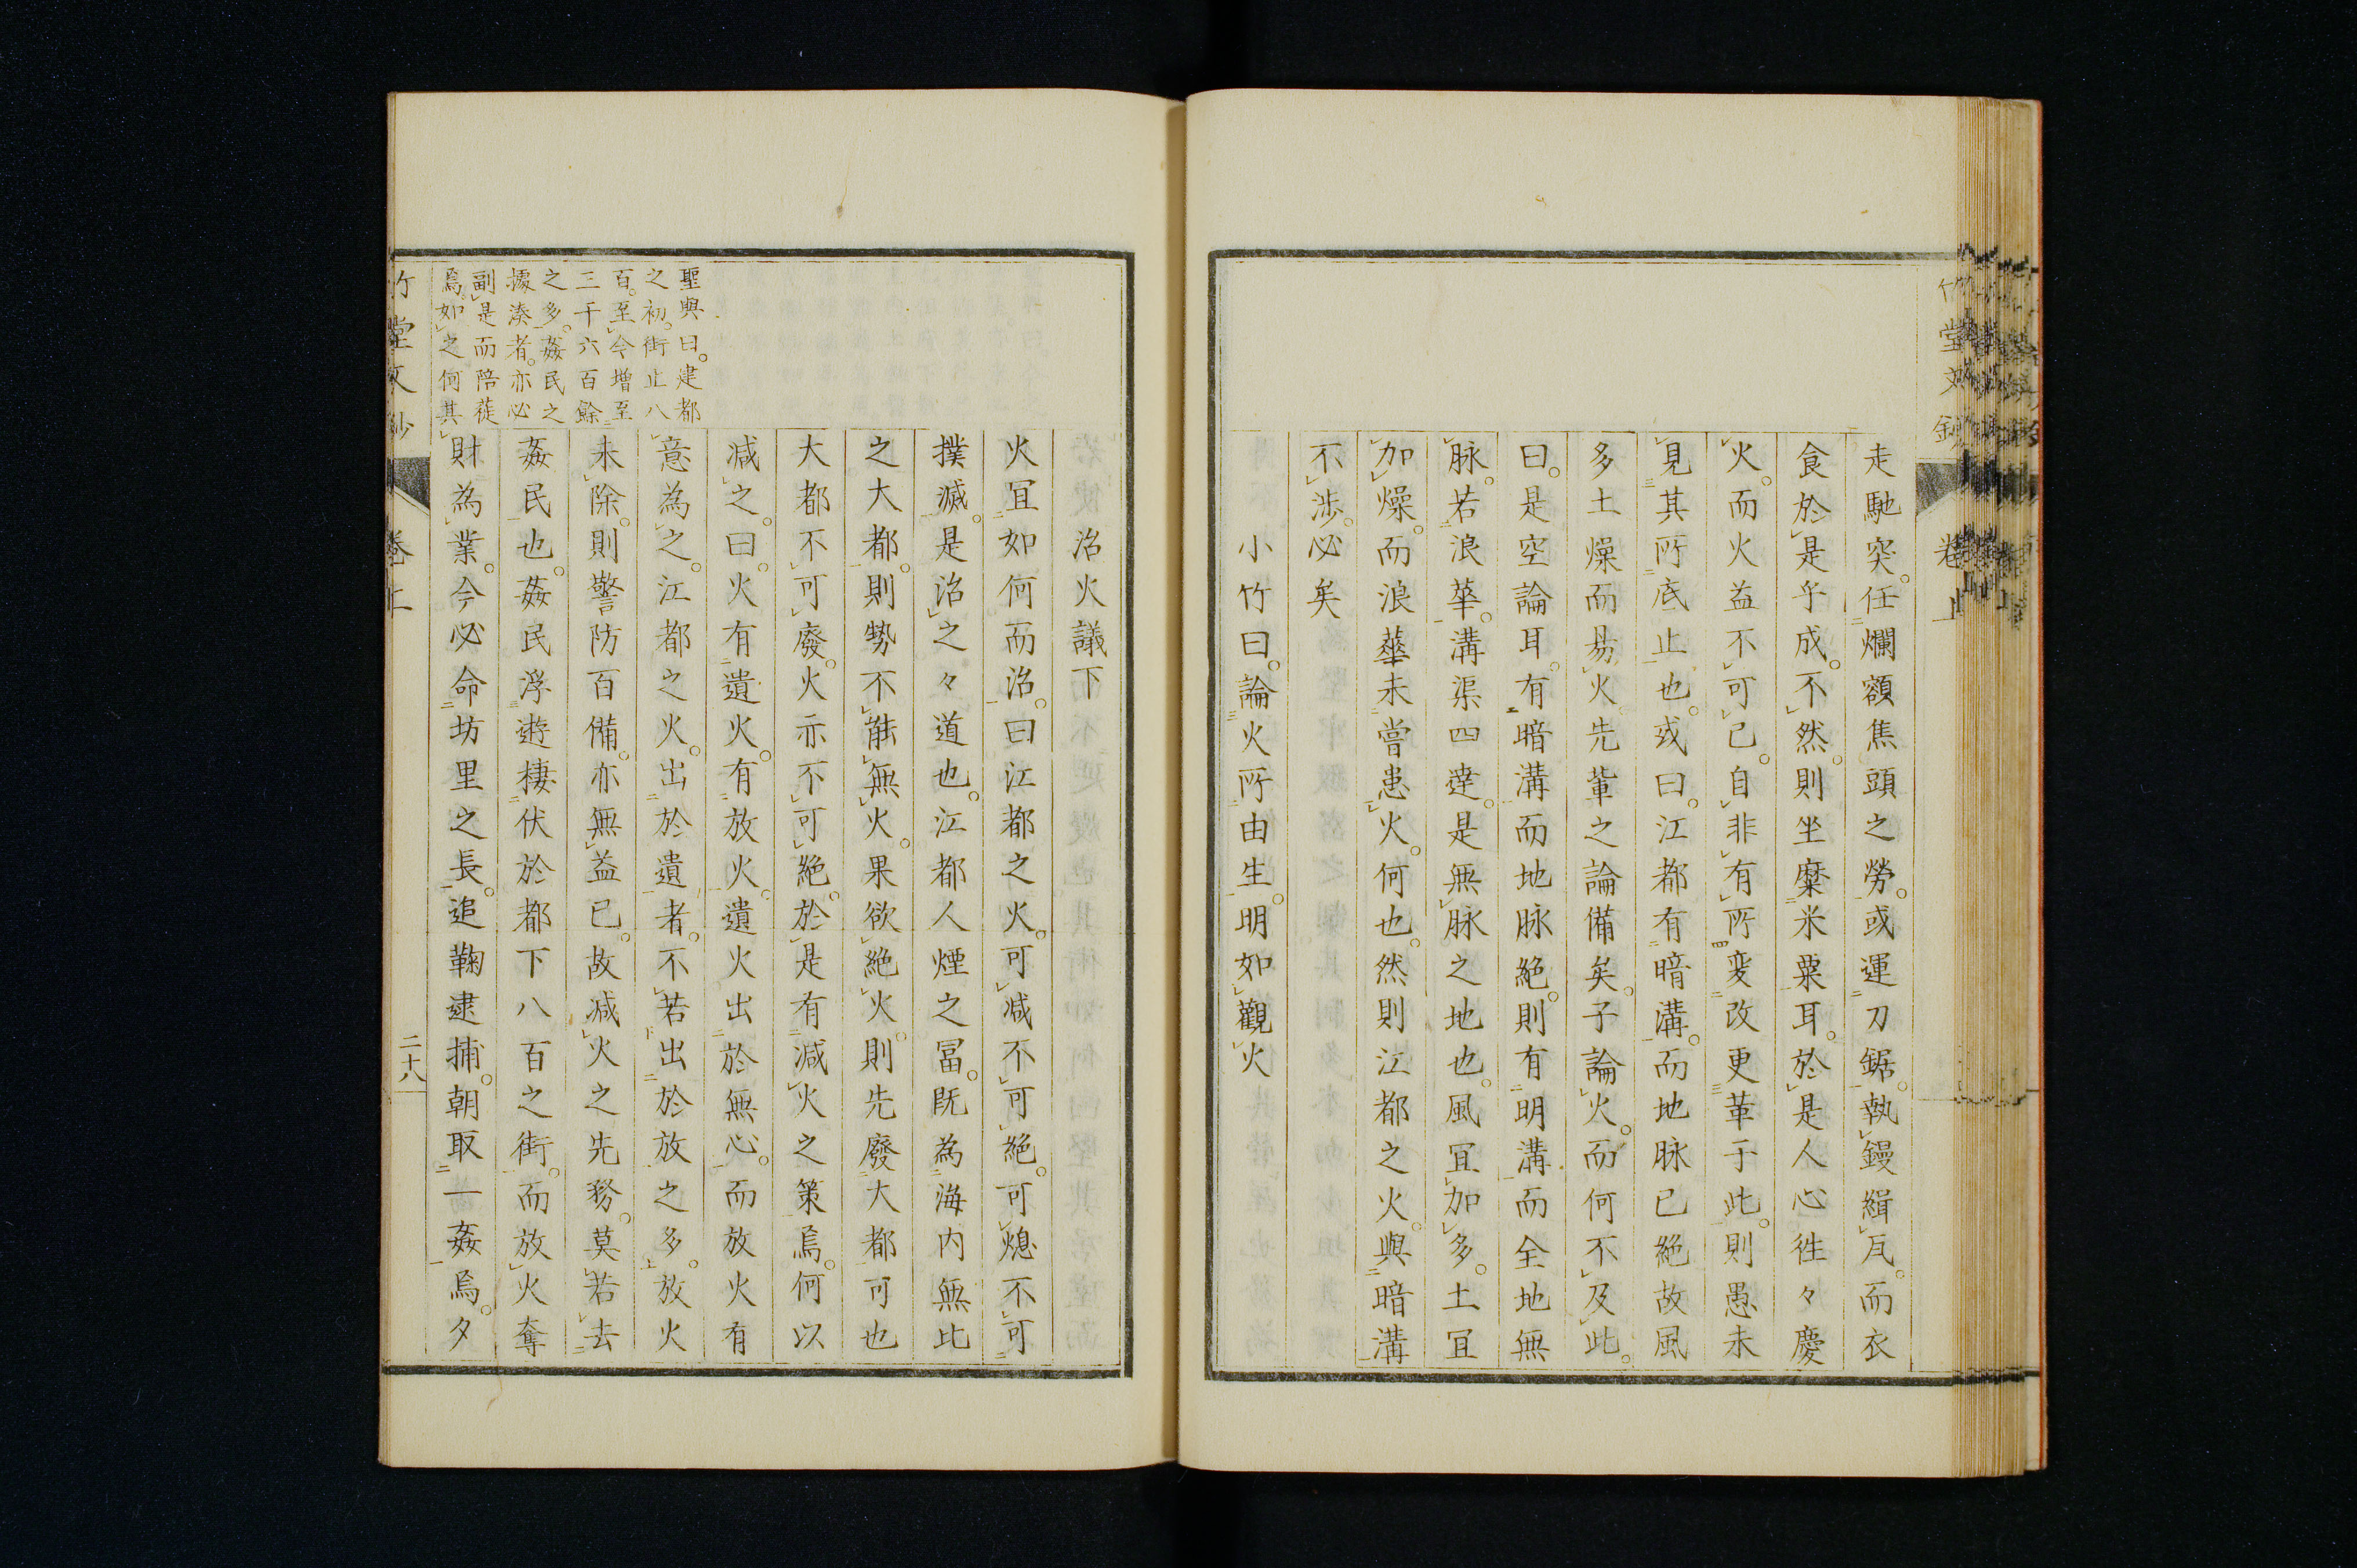 竹堂文鈔
卷上
走馳突。任爛額焦頭之勞。或運刀鋸。執鏝緝瓦。而衣
食於是乎成。不然。則坐糜米粟耳。於是人心徃々慶
火。而火益不可已。自非有所変改更革于此。則愚未
見其所底止也。或曰。江都有暗溝。而地脉已絶故風
多土燥而易火先輩之論備矣。子論火。而何不及此。
曰。是空論耳。有暗溝而地脉絶。則有明溝而全地無
脉。若浪華。溝渠四達。是無脉之地也。風宜加多。土宜
加燥。而浪華未嘗患火。何也。然則江都之火。與暗溝
不渉。必矣
小竹曰。論火所由生。明如觀火
治火議下
火宜如何而治。曰江都之火。可減不可絶。可熄不可
撲滅。是治之々道也。江都人煙之冨。既為海内無比
之大都。則勢不能無火。果欲絶火。則先廢大都可也
大都不可廢。火示不可絶。於是有減火之策焉。何以
減之。曰。火有遺火。有放火。遺火出於無心。而放火有
意為之。江都之火。出於遺者。不若出於放之多。放火
未除。則警防百備。亦無益已。故減火之先務。莫若去
姦民也。姦民浮遊棲伏於都下八百之街。而放火奪
財為業。今必命坊里之長。追鞠逮捕。朝取一姦焉。夕
聖與曰。建都
之初。街止八
百。至今増至
三千六百餘
之多。姦民之
據湊者。亦必
副是而陪蓰
焉。如之何其
竹堂文鈔
卷上
二十八